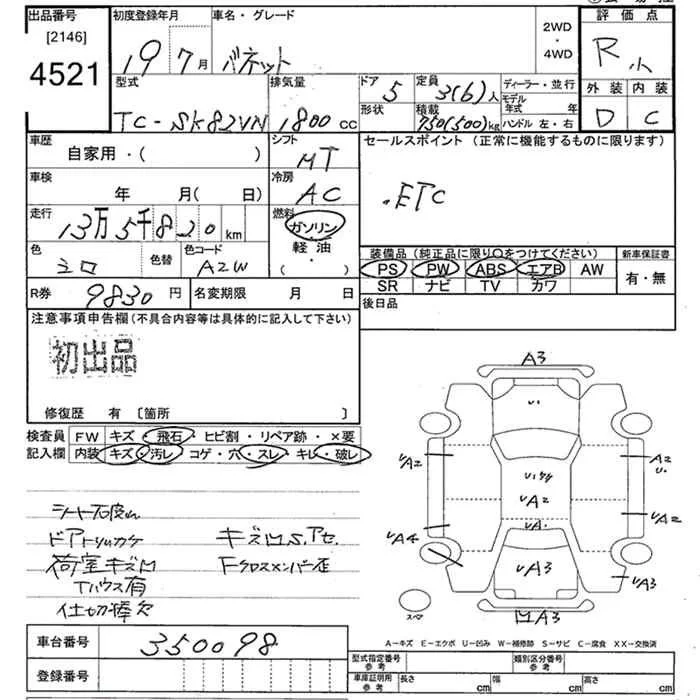 出品番号 初度登録年月 車名・グレード 2WD・4WD 評価点
[2146] 19年7月 バネット R小
4521
型式 排気量 ドア 定員 ディーラー・並行 外装 内装
5 3(6)人 モデル年式 年
TC-SK82VN 1800cc 形状 積載 750(500)kg ハンドル 左・右 D C
車歴 シフト セールスポイント(正常に機能するものに限ります)
自家用・( ) MT
車検 冷房 .ETC
年 月( 日) AC
走行 13万5千820km 燃料 ガソリン・軽油・( )
色 色替 色コード 装備品(純正品に限り○をつけてください) 新車保証書
シロ A2W PS PW ABS エアB AW 有・無
R券 9830円 名変期限 月 日 SR ナビ TV カワ
注意事項申告欄(不具合内容等は具体的に記入して下さい) 後日品
初出品
修復歴 有 [箇所 ]
検査員 FW キズ・飛石・ヒビ割・リペア跡・×要
記入欄 内装 キズ・汚レ・コゲ・穴・スレ・キレ・破レ
A3
U1
UA2 A2 U1
UA2
UA1
UA4 UA2
UA3 UA3
スペア 凹A3
ドアトリムカケ キズ凹S.アセ
荷室キズ凹 Fクロスメンバー歪
Tハウス有
仕切棒欠
A-キズ E-エクボ U-凹み W-補修跡 S-サビ C-腐食 XX-交換済
車台番号 350098
登録番号
型式指定番号 参考 類別区分番号 参考
車庫証明用 参考 長さ cm 幅 cm 高さ cm